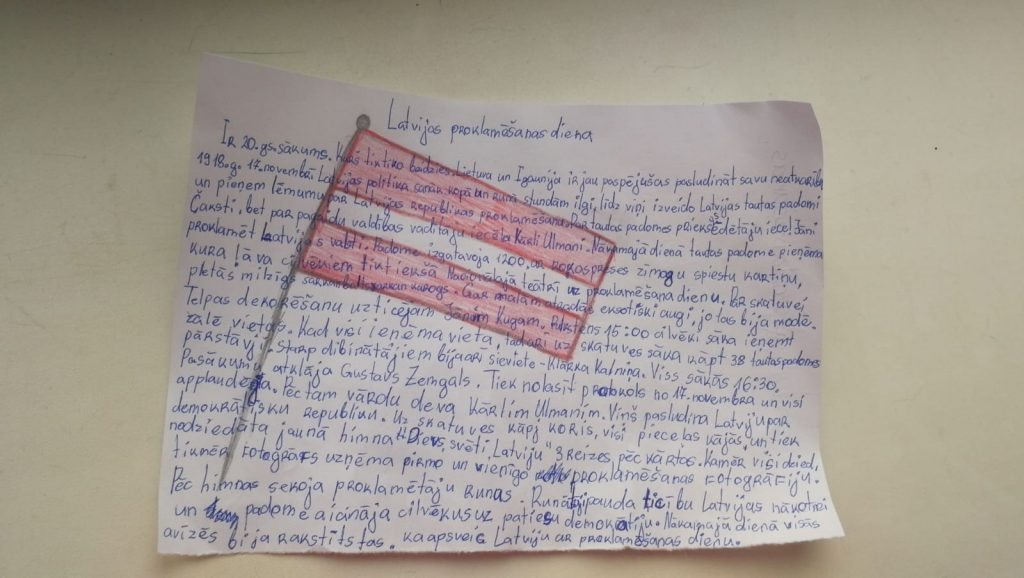 Latvijas proklamāšanas diena
Ir 20.gs.sākums. Karš tiktiko beidzies. Lietuva un Igaunija ir jau paspējušas pasludināt savu neatkarību
1918.g. 17.novembrī Latvijas politiķa sanāk kopā un runā stundām ilgi, līdz viņi izveido Latvijas tautas padomi
un pieņem lēmumu par Latvijas republikas proklamēšanu. Par tautas padomes priekšsēdētāju ieceļ Jāni
Čaksti, bet par pagaidu valdības vadītāju iecēla Kārli Ulmani. Nākamajā dienā tautas padome pieņēma
proklamēt Latvijas valsti. Padome izgatavoja 1200, ar rokas preses zīmogu spiestu kartiņu,
kura ļāva cilvēkiem tikt iekšā Nacionālajā teātrī uz proklamēšana dienu. Pār skatuvei
pletās milzīgs sarkanbaltsarkan karogs. Gar malām atradās eksotiski augi, jo tas bija modē.
Telpas dekorēšanu uzticējam Jānim Kugam. Plkstens 15:00 cilvēki sāka ieņemt
zālē vietas. Kad visi ieņēma vieta, tad arī uz skatuves sāka kāpt 38 tautas padomes
pārstāvji. Starp dibinātājiem bija arī sieviete - Klārka Kalniņa. Viss sākās 16:30.
Pasākumu atklāja Gustavs Zemgals. Tiek nolasīt protokols no 17.novembra un visi
applaudēja. Pēc tam vārdu deva Kārlim Ulmanim. Viņš pasludina Latviju par
demokrātisku republiku. Uz skatuves kāpj koris, visi pieceļas kājās, un tiek
nodziedāta jaunā himna "Dievs, svētī Latviju" 3 reizes pēc kārtas. Kamēr visi dzied,
tikmēr fotogrāfs uzņēma pirmo un vienīgo proklamēšanas fotogrāfiju.
Pēc himnas sekoja proklamētāju runas. Runātāji pauda ticību Latvijas nākotnei
un padome aicināja cilvēkus uz patiesu demokrātiju. Nākamajā dienā visās
avīzēs bija rakstīts tas. ka apsveic Latviju ar proklamēšanas dienu.